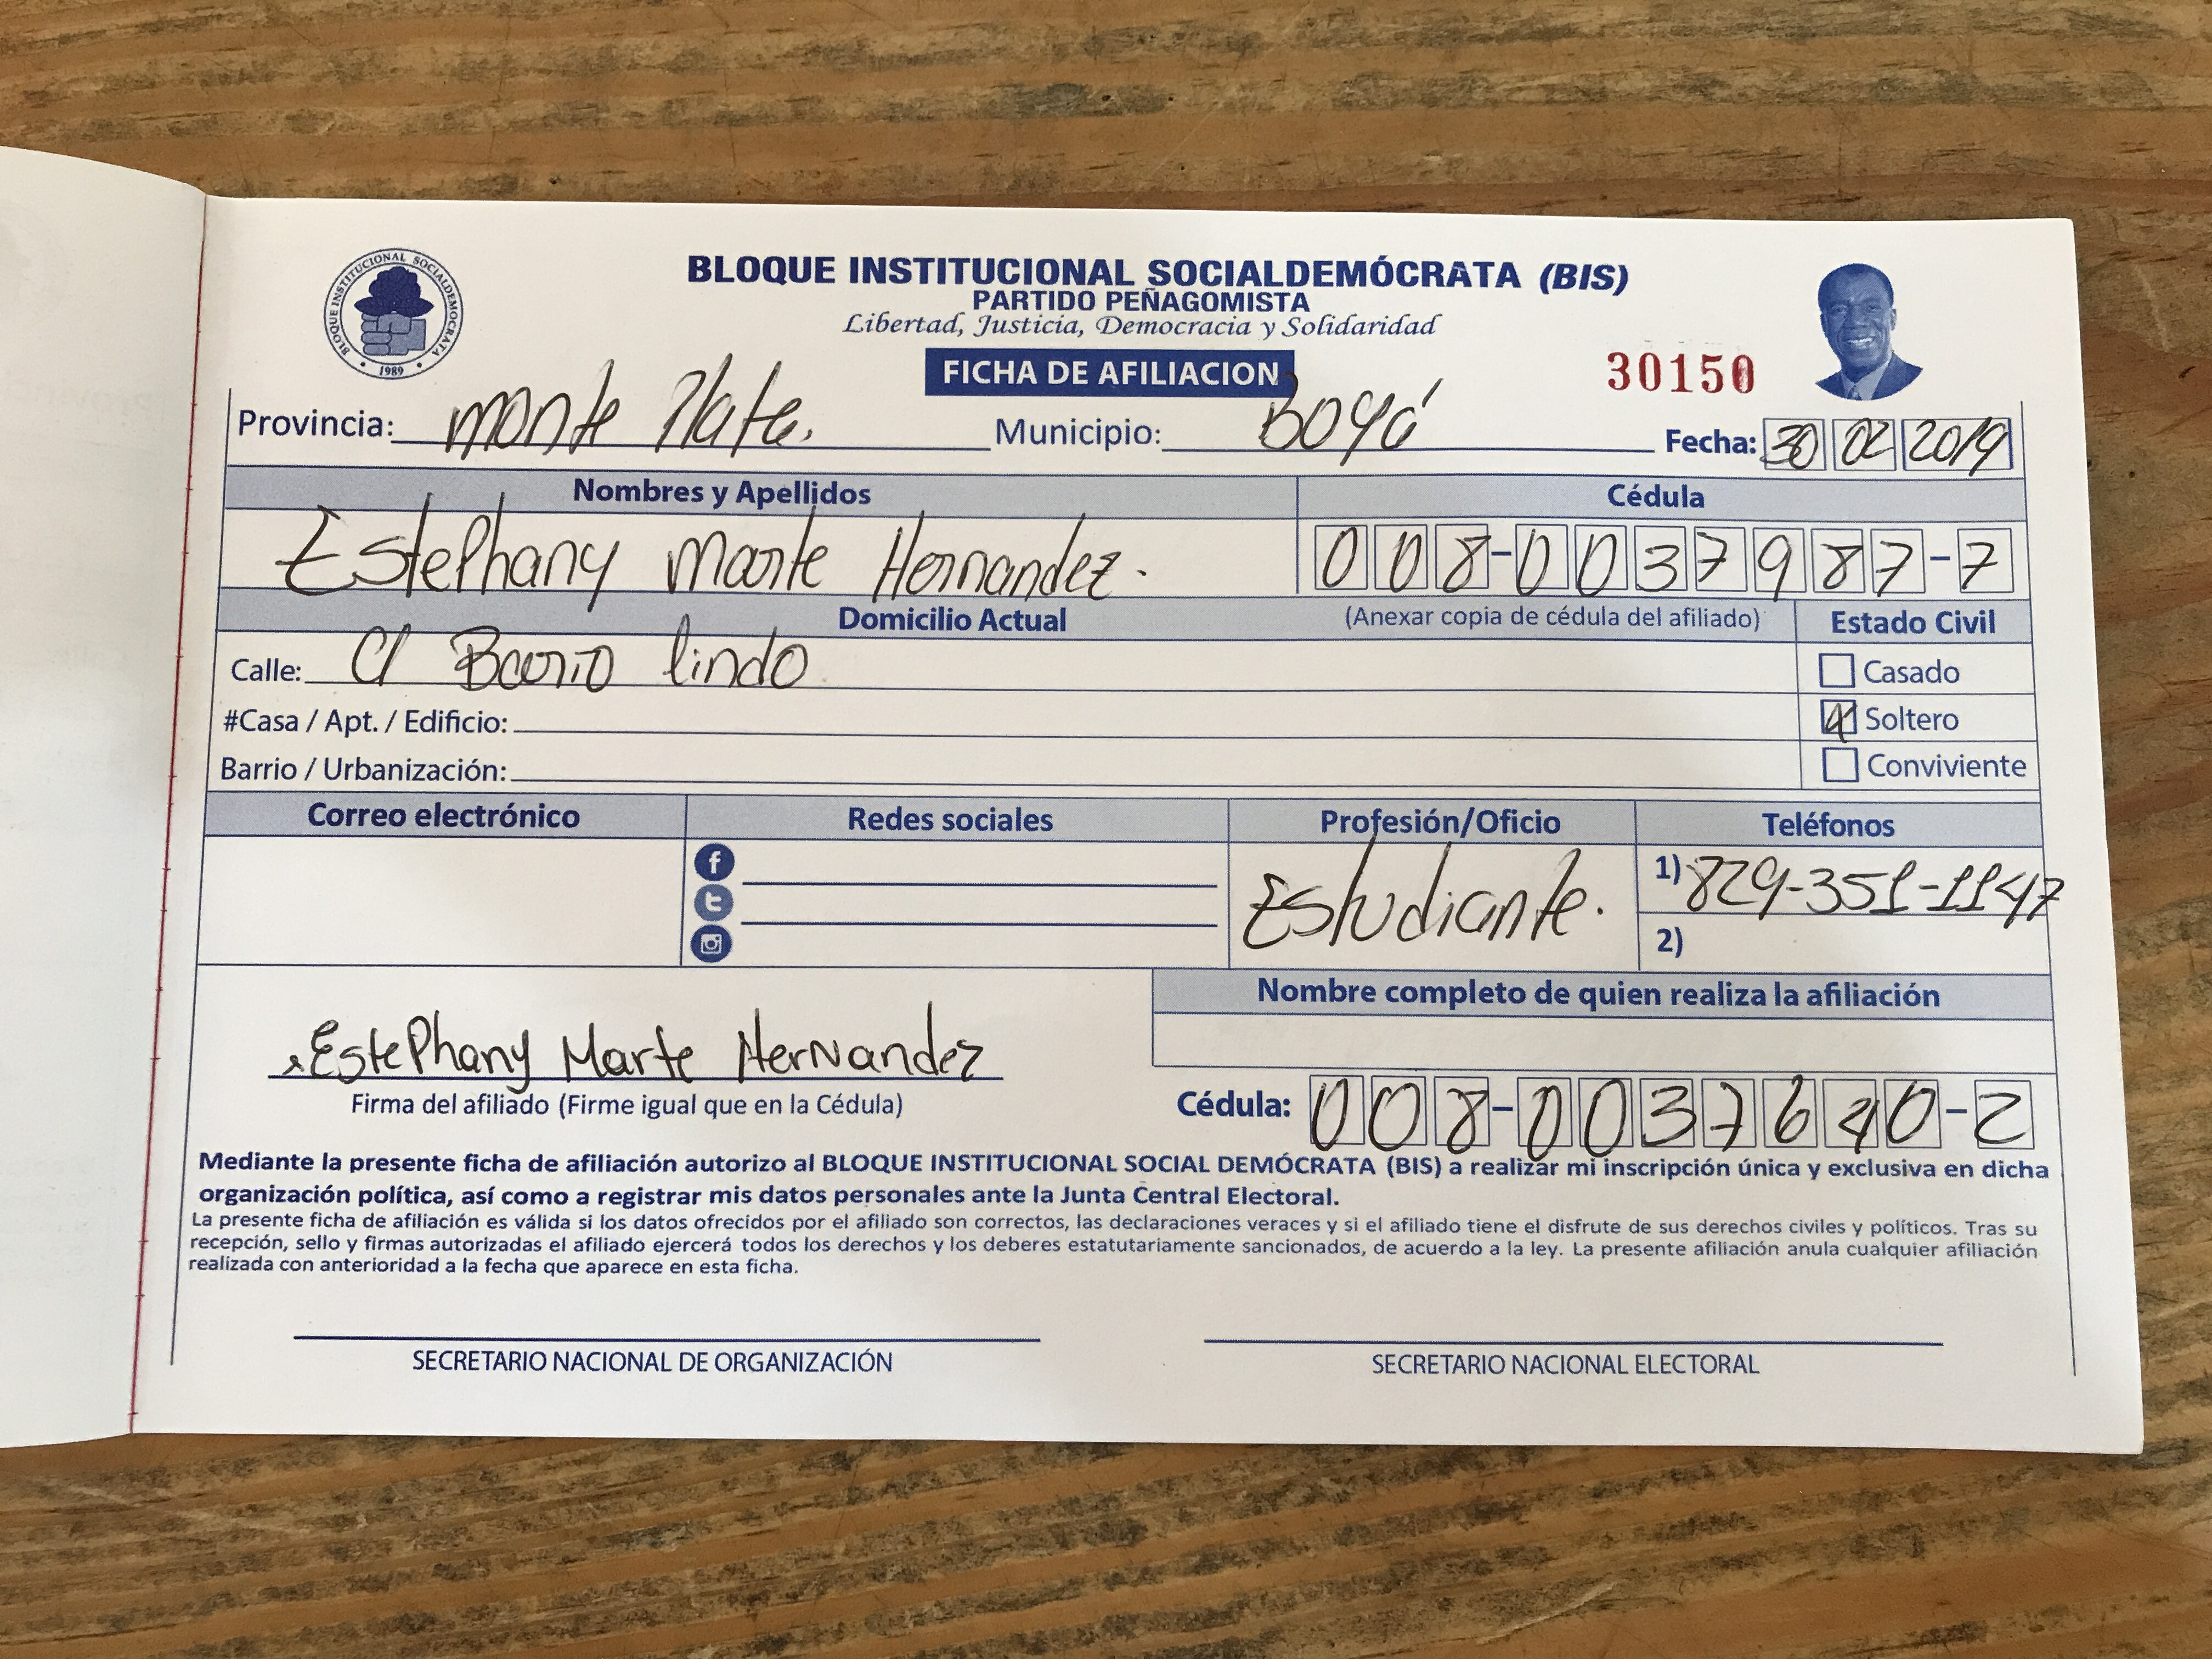 BLOQUE INSTITUCIONAL SOCIALDEMÓCRATA
1989
BLOQUE INSTITUCIONAL SOCIALDEMÓCRATA (BIS)
PARTIDO PEÑAGOMISTA
Libertad, Justicia, Democracia y Solidaridad
FICHA DE AFILIACION
30150
Provincia: Monte Plata. Municipio: Boyá Fecha: 30 02 2019
Nombres y Apellidos Cédula
Estephany Marte Hernandez. 008-0037987-7
Domicilio Actual (Anexar copia de cédula del afiliado) Estado Civil
Calle: C/ Barrio lindo Casado
#Casa / Apt. / Edificio: Soltero
Barrio / Urbanización: Conviviente
Correo electrónico Redes sociales Profesión/Oficio Teléfonos
Estudiante. 1) 829-351-1147
2)
Nombre completo de quien realiza la afiliación
EstePhany Marte HerNandez
Firma del afiliado (Firme igual que en la Cédula) Cédula: 008-0037640-2
Mediante la presente ficha de afiliación autorizo al BLOQUE INSTITUCIONAL SOCIAL DEMÓCRATA (BIS) a realizar mi inscripción única y exclusiva en dicha
organización política, así como a registrar mis datos personales ante la Junta Central Electoral.
La presente ficha de afiliación es válida si los datos ofrecidos por el afiliado son correctos, las declaraciones veraces y si el afiliado tiene el disfrute de sus derechos civiles y políticos. Tras su
recepción, sello y firmas autorizadas el afiliado ejercerá todos los derechos y los deberes estatutariamente sancionados, de acuerdo a la ley. La presente afiliación anula cualquier afiliación
realizada con anterioridad a la fecha que aparece en esta ficha.
SECRETARIO NACIONAL DE ORGANIZACIÓN SECRETARIO NACIONAL ELECTORAL